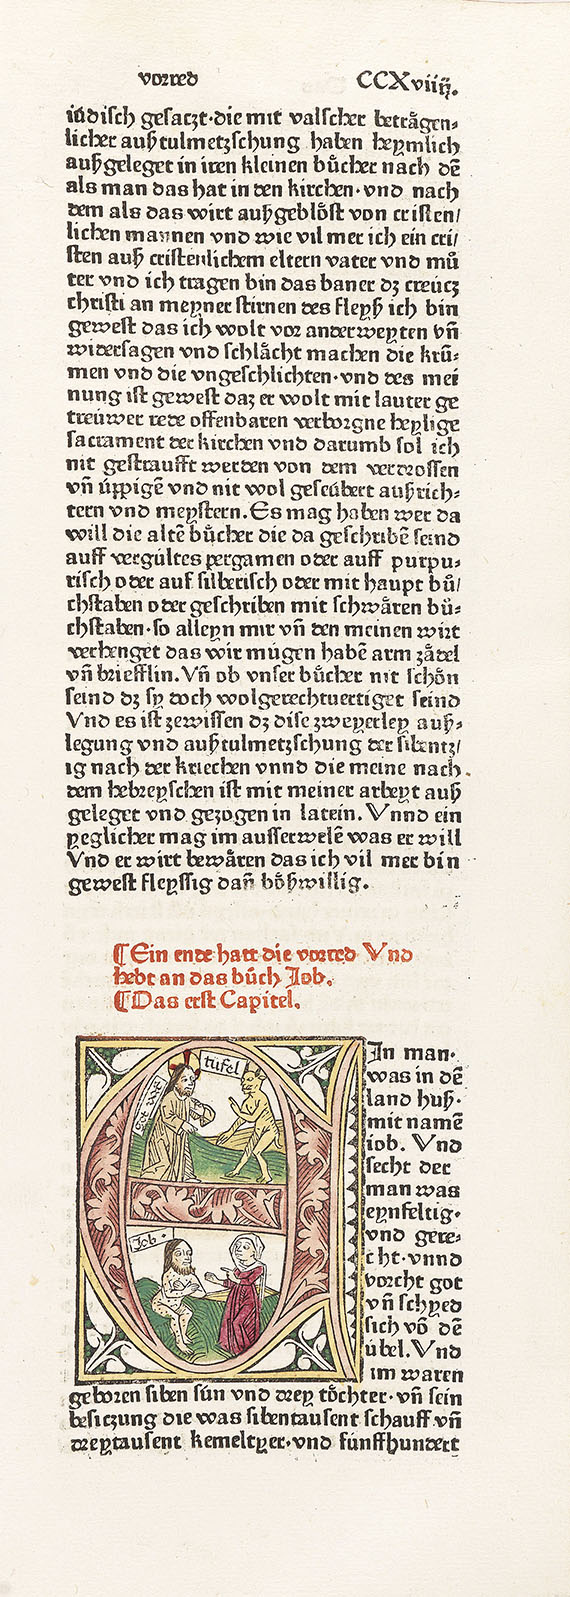 vorred CCXviiij.
iüdisch gesatzt·die mit valscher beträgen⸗
licher außtulmetzschung haben heymlich
außgeleget in iren kleinen bůcher nach dē
als man das hat in den kirchen·vnd nach
dem als das wirt außgeblöst von cristen/
lichen mannen vnd wie vil mer ich ein cri/
sten auß cristenlichem eltern vater vnd mů
ter vnd ich tragen bin das baner dz creücz
christi an meyner stirnen des fleyß ich bin
gewest das ich wolt vor anderweyten vñ
widersagen vnd schlächt machen die krū⸗
men vnd die vngeschlichten·vnd des mei
nung ist gewest daz er wolt mit lauter ge
treüwer rede offenbaren verborgne heylige
sacrament der kirchen vnd darumb sol ich
nit gestraufft werden von dem verdrossen
vñ üppigē vnd nit wol geseübert außrich⸗
tern vnd meystern. Es mag haben wer da
will die altē bůcher die da geschribē seind
auff vergültes pergamen oder auff purpu⸗
risch oder auf silberisch oder mit haupt bů/
chstaben oder geschriben mit schwären bů⸗
chstaben·so alleyn mir vñ den meinen wirt
verhenget das wir mügen habē arm zådel
vñ briefflin. Vñ ob vnser bůcher nit schön
seind dz sy doch wolgerechtuertiget seind
Vnd es ist zewissen dz dise zweyerley auß⸗
legung vnd außtulmetzschung der sibentz/
ig nach der kriechen vnnd die meine nach
dem hebreyschen ist mit meiner arbeyt auß
geleget vnd gezogen in latein. Vnnd ein
yeglicher mag im ausserwelē was er will
Vnd er wirt bewåren das ich vil mer bin
gewest fleyssig dañ bößwillig.
¶Ein ende hatt die vorred Vnd
hebt an das bůch Job.
¶Das erst Capitel.
tüfel
Job·
In man·
was in dē
land huß·
mit namē
iob. Vnd
secht der
man was
eynfeltig·
vnd gere⸗
cht·vnnd
vorcht got
vñ schyed
sich vō dē
übel. Vnd
im waren
geboren siben sün vnd drey töchter·vñ sein
besiczung die was sibentausent schauff vñ
dreytausent kemeltyer·vnd fünffhundert